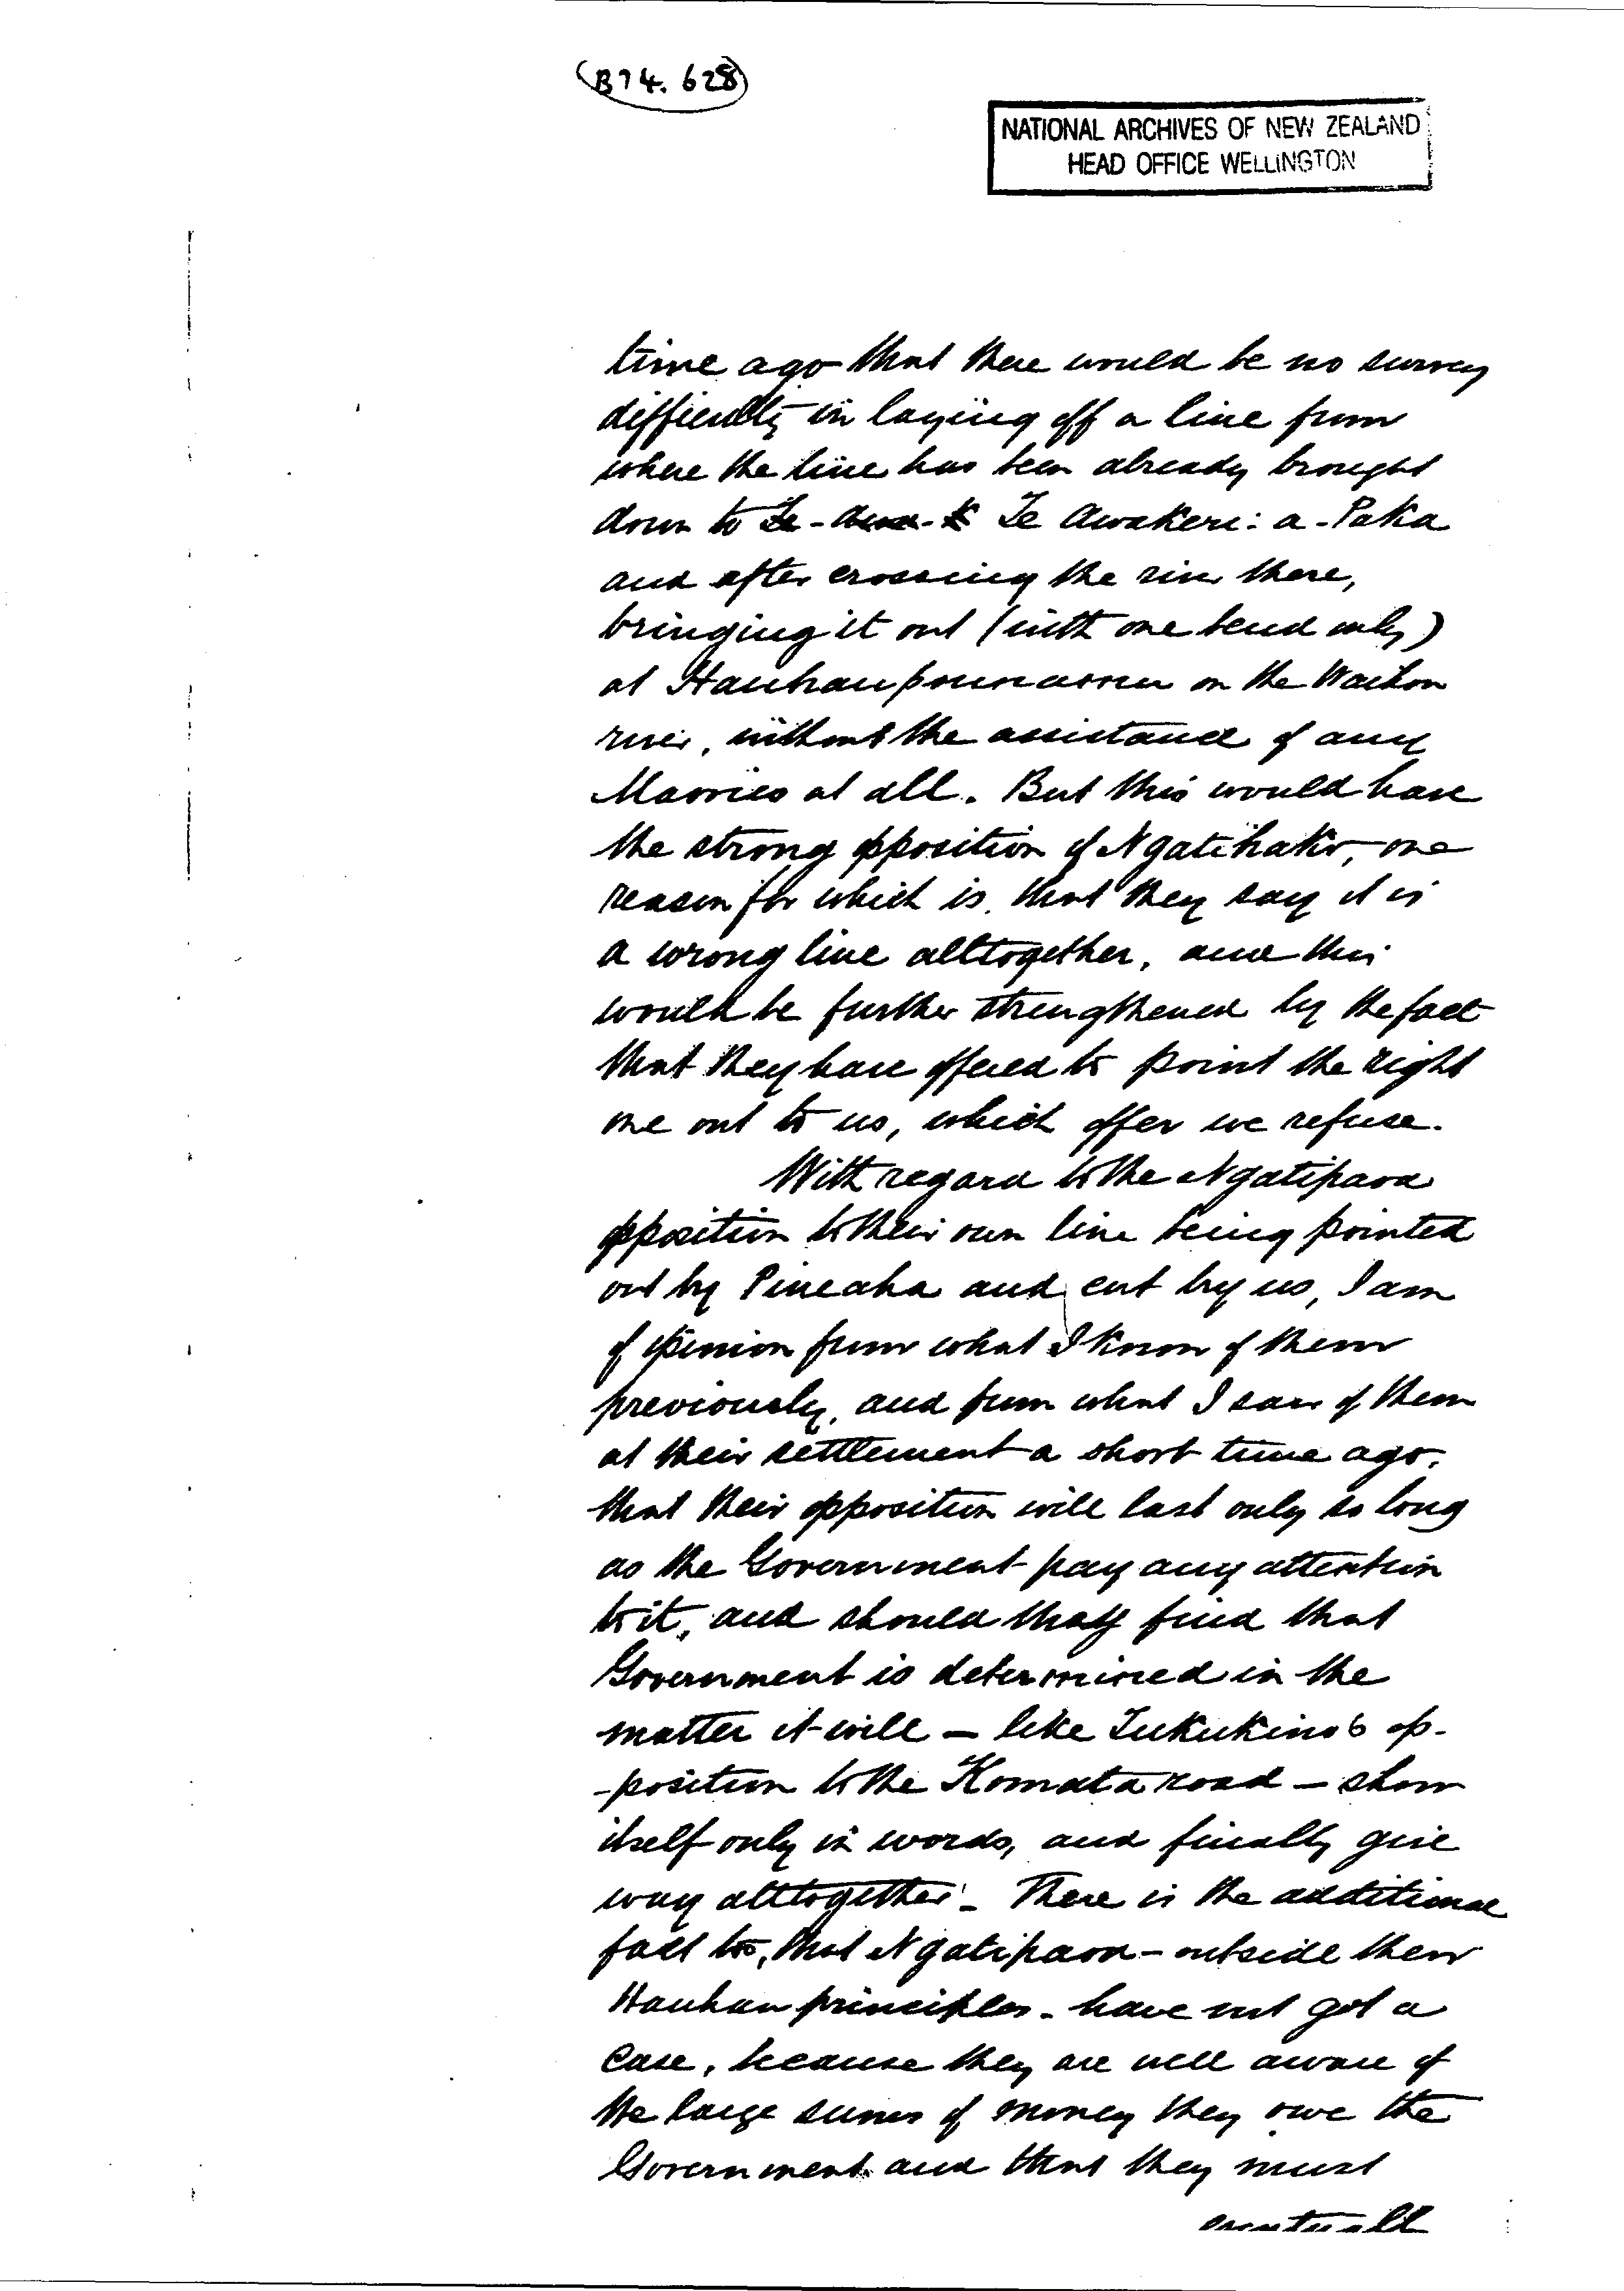 (B74. 628)
NATIONAL ARCHIVES OF NEW ZEALAND
HEAD OFFICE WELLINGTON
time ago that there would be no survey
difficulty in laying off a line from
where the line has been already brought
down to Te Awakeri: a-Paka
and after crossing the river there,
bringing it out (with one bend only)
at Hauhaupounamu on the Waihou
river, without the assistance of any
Maories at all. But this would have
the strong opposition of Ngatihako, one
reason for which is, that they say it is
a wrong line alltogether, and this
would be further strengthened by the fact
that they have offered to point the right
one out to us, which offer we refuse.
With regard to the Ngatipaoa
opposition to their own line being pointed
out by Pineaha and cut by us, I am
of opinion from what I know of them
previously, and from what I saw of them
at their settlement a short time ago,
that their opposition will last only so long
as the Government pay any attention
to it, and should they find that
Government is determined in the
matter it will – like Tukukino's op-
-position to the Komata road – show
itself only in words, and finally give
way alltogether. There is the additional
fact too, that Ngatipaoa – outside their
Hauhau principles – have not got a
case, because they are well aware of
the large sums of money they owe the
Government and that they must